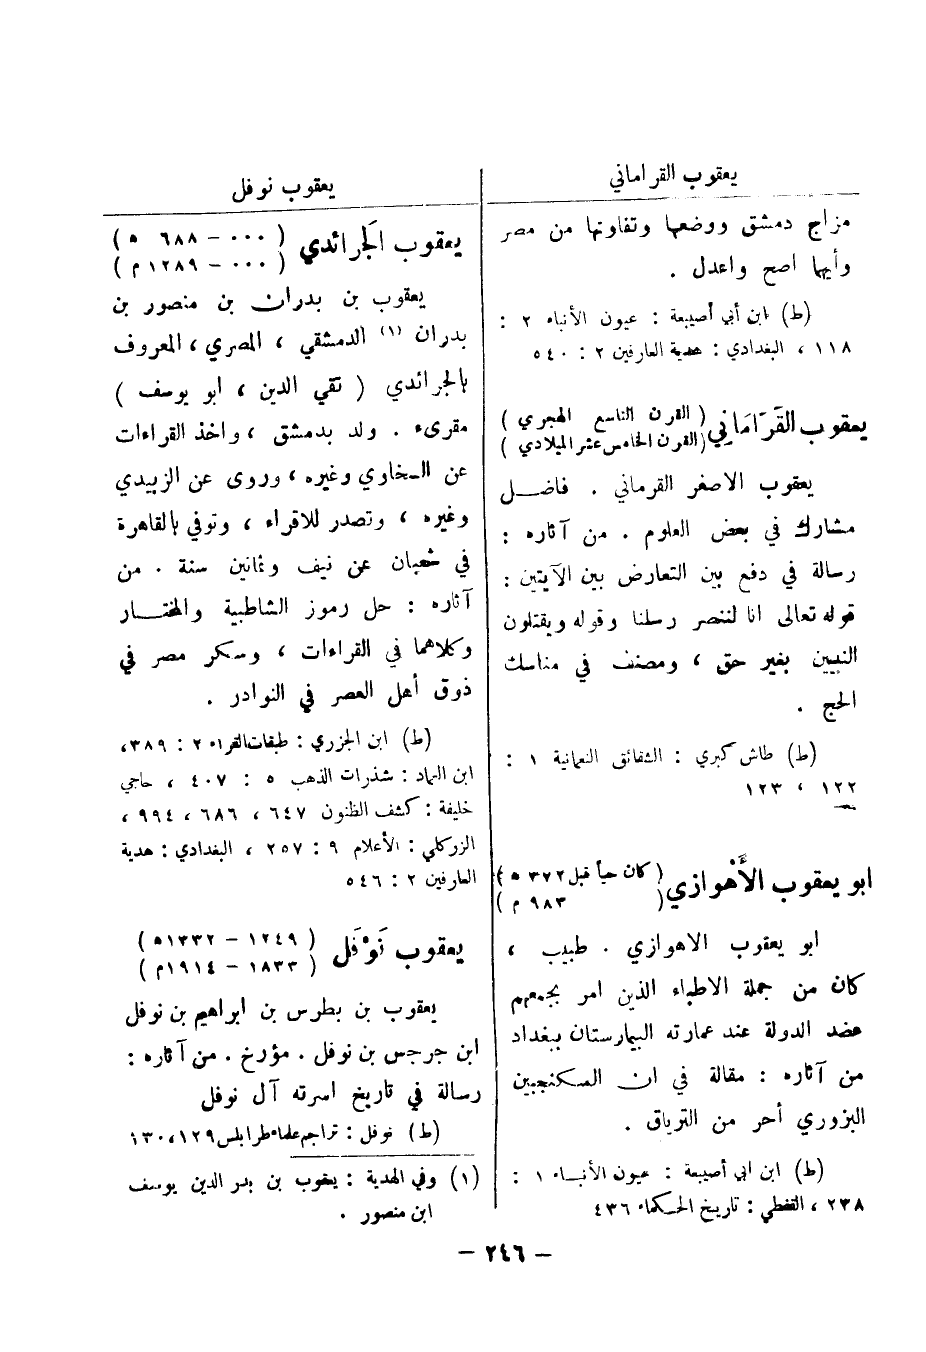 يعقوب القراماني
مزاج دمشق ووضعها وتفاوتها من مصر
وأيها اصح واعدل .
(ط) ابن أبي أصيبعة : عيون الأنباء ٢ :
١١٨ ، البغدادي : هدية العارفين ٢ : ٥٤٠
يعقوب القَرَامَانِي (القرن التاسع الهجري)
(القرن الخامس عشر الميلادي)
يعقوب الاصغر القرماني . فاضل
مشارك في بعض العلوم . من آثاره :
رسالة في دفع بين التعارض بين الآيتين :
قوله تعالى انا لننصر رسلنا وقوله ويقتلون
النبيين بغير حق ، ومصنف في مناسك
الحج .
(ط) طاش كبري : الشقائق النعمانية ١ :
١٢٢ ، ١٢٣
ابو يعقوب الأَهْوازي (كان حياً قبل ٣٧٢ ه)
( ٩٨٣ م)
ابو يعقوب الاهوازي . طبيب ،
كان من جملة الاطباء الذين امر بجمعهم
عضد الدولة عند عمارته البيمارستان ببغداد
من آثاره : مقالة في ان السكنجبين
البزوري أحر من الترياق .
(ط) ابن ابي أصيبعة : عيون الأنباء ١ :
٢٣٨ ، القفطي : تاريخ الحكماء ٤٣٦
يعقوب نوفل
يعقوب الجَرائدي (٠٠٠ – ٦٨٨ ه)
(٠٠٠ – ١٢٨٩ م)
يعقوب بن بدران بن منصور بن
بدران (١) الدمشقي ، المصري ، المعروف
بالجرائدي ( تقي الدين ، ابو يوسف )
مقرىء . ولد بدمشق ، واخذ القراءات
عن السخاوي وغيره ، وروى عن الزبيدي
وغيره ، وتصدر للاقراء ، وتوفي بالقاهرة
في شعبان عن نيف وثمانين سنة . من
آثاره : حل رموز الشاطبية والمختار
وكلاهما في القراءات ، وسكر مصر في
ذوق أهل العصر في النوادر .
(ط) ابن الجزري : طبقات القراء ٢ : ٣٨٩،
ابن العماد : شذرات الذهب ٥ : ٤٠٧ ، حاجي
خليفة : كشف الظنون ٦٤٧ ، ٦٨٦ ، ٩٩٤ ،
الزركلي : الأعلام ٩ : ٢٥٧ ، البغدادي : هدية
العارفين ٢ : ٥٤٦
يعقوب نَوْفَل (١٢٤٩ – ١٣٣٢ه)
(١٨٣٣ – ١٩١٤م)
يعقوب بن بطرس بن ابراهيم بن نوفل
ابن جرجس بن نوفل . مؤرخ . من آثاره :
رسالة في تاريخ اسرته آل نوفل
(ط) نوفل : تراجم علماء طرابلس ١٢٩، ١٣٠
(١) وفي الهدية : يعقوب بن بدر الدين يوسف
ابن منصور .
– ٢٤٦ –